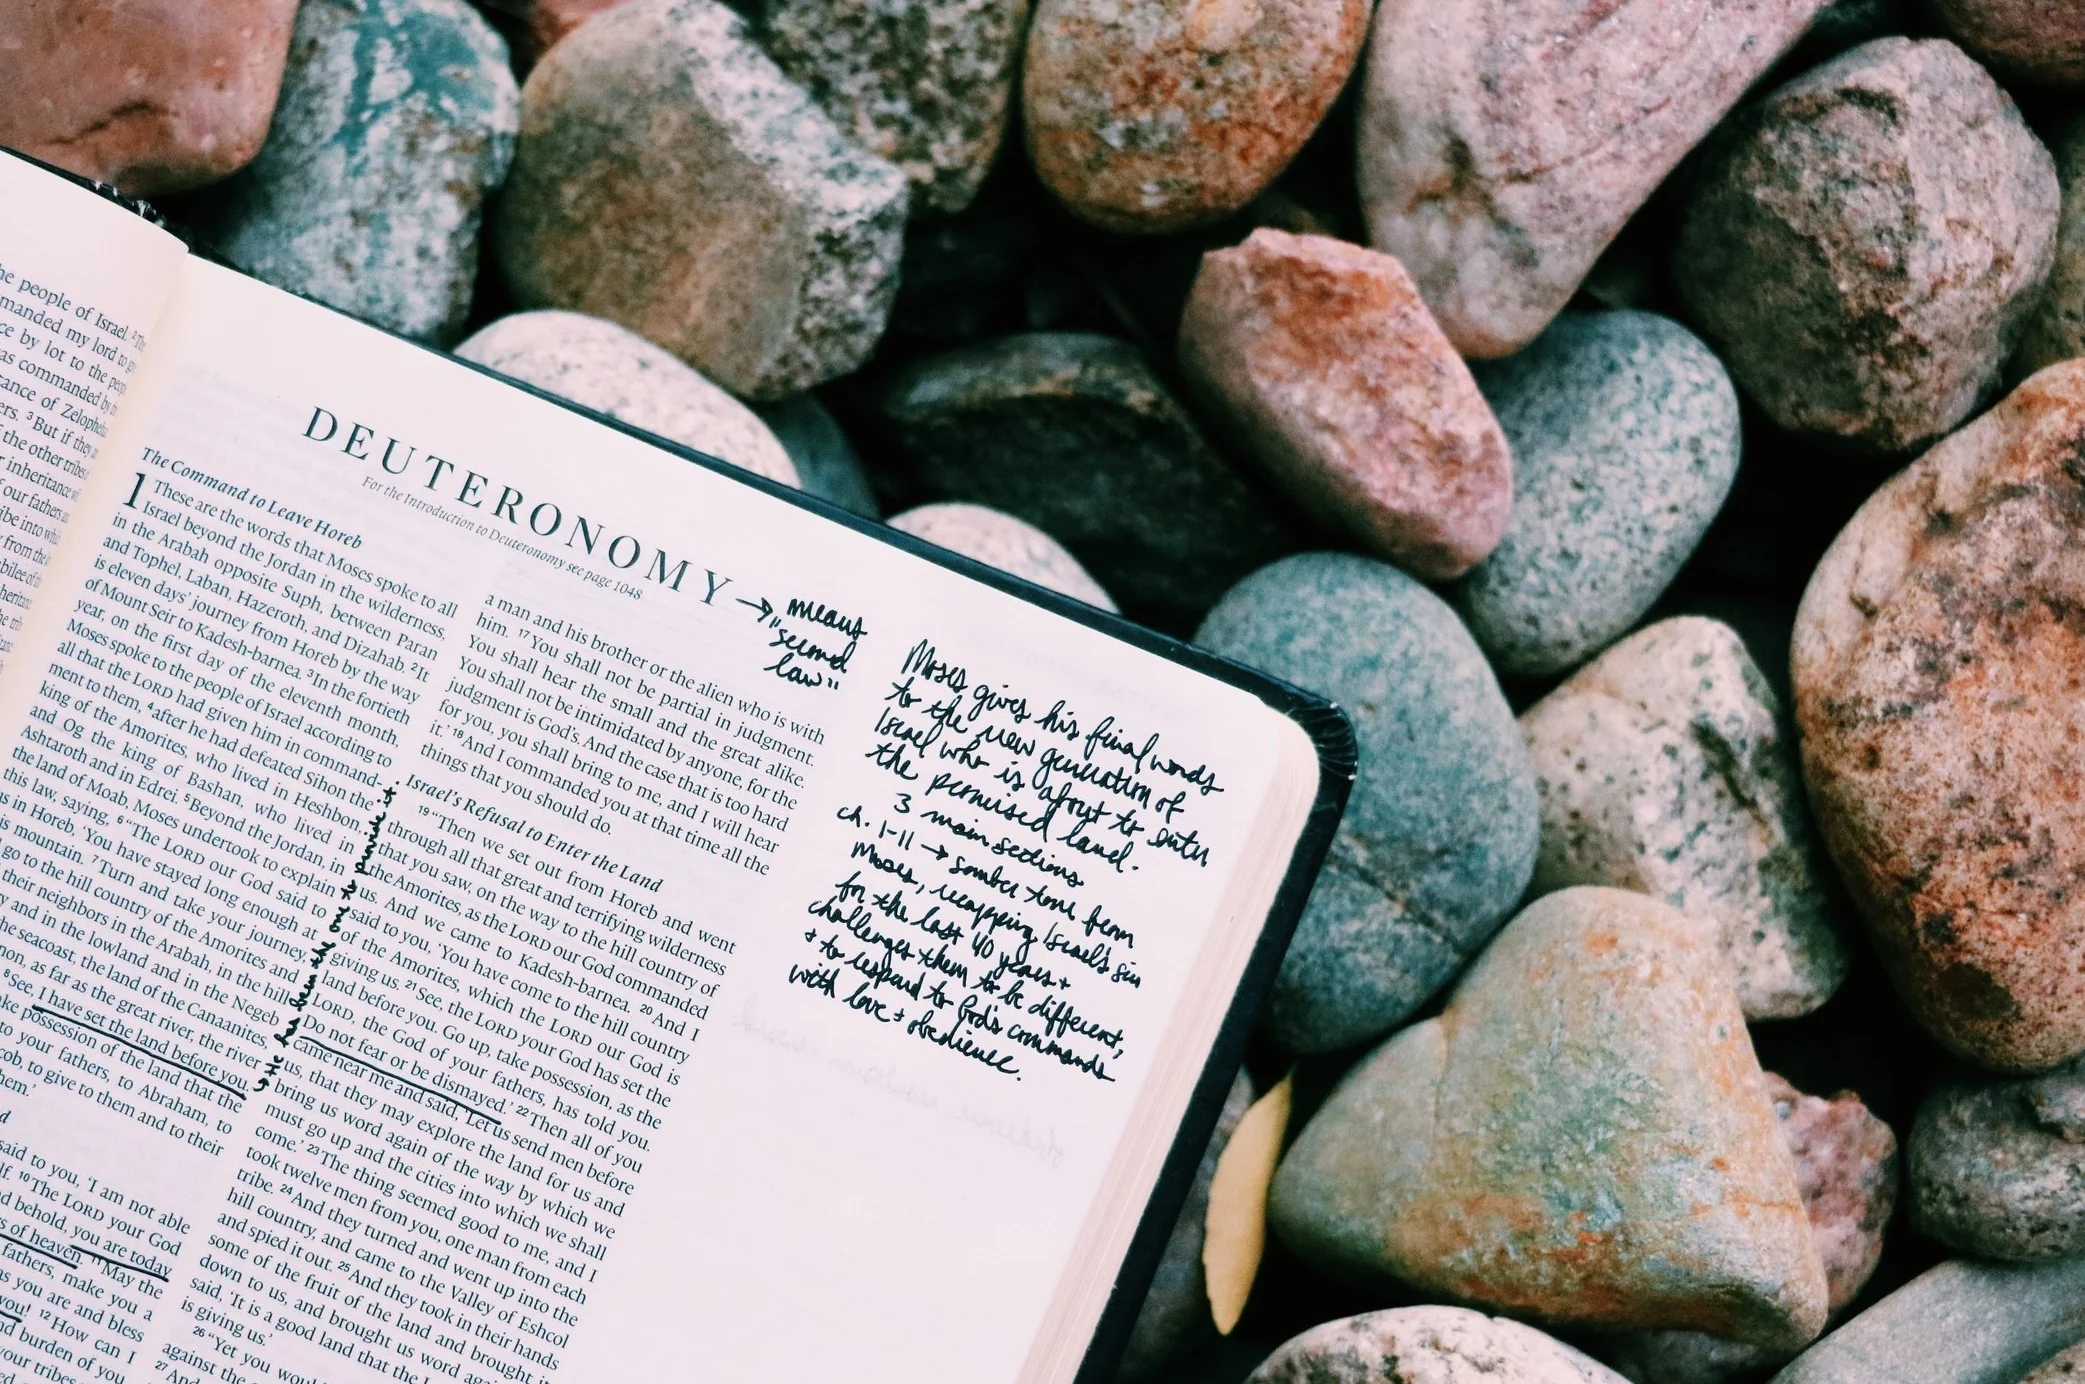 he people of Israel. ²Th
manded my lord to gi
ce by lot to the peop
as commanded by th
tance of Zelopheha
ers. ³But if they a
f the other tribes
r inheritance wi
f our fathers a
ribe into wh
from the
DEUTERONOMY
For the Introduction to Deuteronomy see page 1048
→ means
"second
law"
The Command to Leave Horeb
1 These are the words that Moses spoke to all
Israel beyond the Jordan in the wilderness,
in the Arabah opposite Suph, between Paran
and Tophel, Laban, Hazeroth, and Dizahab. ²It
is eleven days' journey from Horeb by the way
of Mount Seir to Kadesh-barnea. ³In the fortieth
year, on the first day of the eleventh month,
Moses spoke to the people of Israel according to
all that the LORD had given him in command-
ment to them, ⁴after he had defeated Sihon the
king of the Amorites, who lived in Heshbon,
and Og the king of Bashan, who lived in
Ashtaroth and in Edrei. ⁵Beyond the Jordan, in
the land of Moab, Moses undertook to explain
this law, saying, ⁶"The LORD our God said to
us in Horeb, 'You have stayed long enough at
is mountain. ⁷Turn and take your journey,
go to the hill country of the Amorites and
their neighbors in the Arabah, in the hill
y and in the lowland and in the Negeb
he seacoast, the land of the Canaanites,
non, as far as the great river, the river
⁸See, I have set the land before you.
ke possession of the land that the
to your fathers, to Abraham, to
cob, to give to them and to their
hem.'
d
said to you, 'I am not able
lf. ¹⁰The LORD your God
d behold, you are today
s of heaven. ¹¹May the
fathers, make you a
as you are and bless
you! ¹²How can I
nd burden of you
your tribes
He has been the one to provide it.
a man and his brother or the alien who is with
him. ¹⁷You shall not be partial in judgment.
You shall hear the small and the great alike.
You shall not be intimidated by anyone, for the
judgment is God's. And the case that is too hard
for you, you shall bring to me, and I will hear
it.' ¹⁸And I commanded you at that time all the
things that you should do.
Israel's Refusal to Enter the Land
¹⁹"Then we set out from Horeb and went
through all that great and terrifying wilderness
that you saw, on the way to the hill country of
the Amorites, as the LORD our God commanded
us. And we came to Kadesh-barnea. ²⁰And I
said to you, 'You have come to the hill country
of the Amorites, which the LORD our God is
giving us. ²¹See, the LORD your God has set the
land before you. Go up, take possession, as the
LORD, the God of your fathers, has told you.
Do not fear or be dismayed.' ²²Then all of you
came near me and said, 'Let us send men before
us, that they may explore the land for us and
bring us word again of the way by which we
must go up and the cities into which we shall
come.' ²³The thing seemed good to me, and I
took twelve men from you, one man from each
tribe. ²⁴And they turned and went up into the
hill country, and came to the Valley of Eshcol
and spied it out. ²⁵And they took in their hands
some of the fruit of the land and brought it
down to us, and brought us word again and
said, 'It is a good land that the L
is giving us.'
²⁶"Yet you woul
against the
²⁷And
Moses gives his final words
to the new generation of
Israel who is about to enter
the promised land.
3 main sections
ch. 1-11 → somber tone from
Moses, recapping Israel's sin
for the last 40 years +
challenges them to be different,
+ to respond to God's commands
with love + obedience.